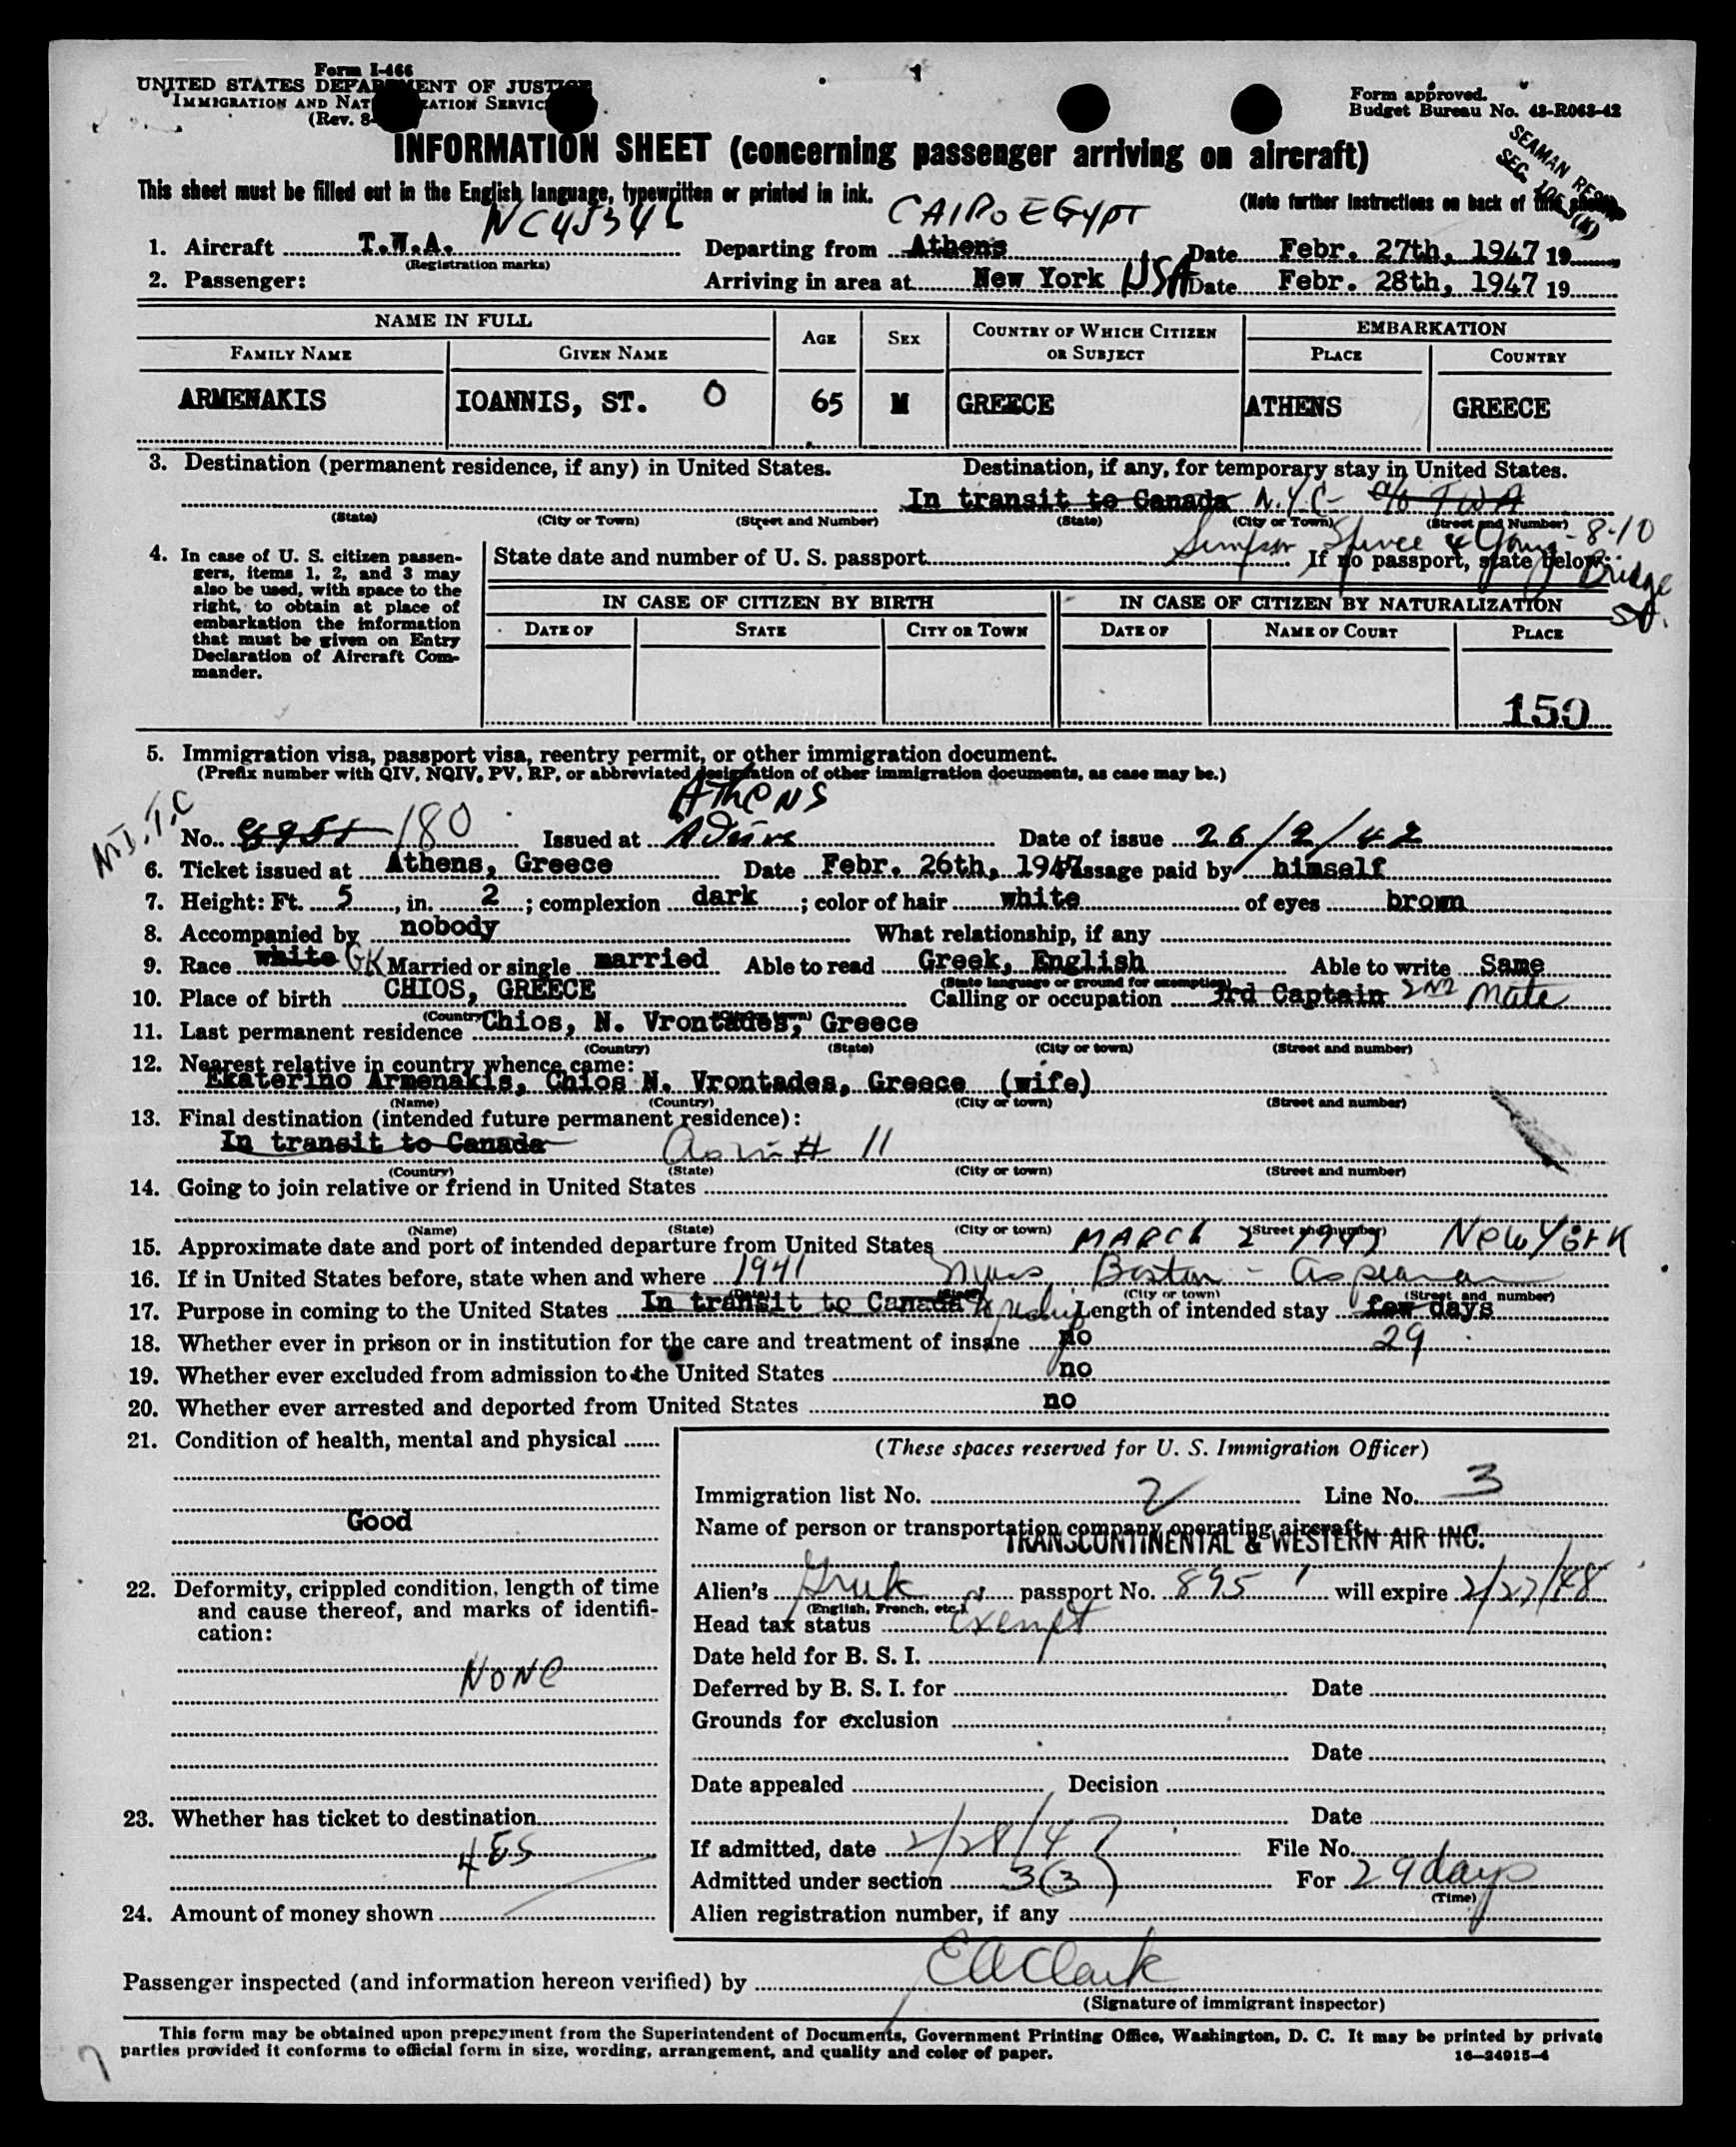 1
Form I-466
UNITED STATES DEPARTMENT OF JUSTICE
IMMIGRATION AND NATURALIZATION SERVICE
(Rev. 8-
Form approved.
Budget Bureau No. 43-R063-42
INFORMATION SHEET (concerning passenger arriving on aircraft)
SEAMAN
SEC.
This sheet must be filled out in the English language, typewritten or printed in ink.
(Note further instructions on back of this sheet)
CAIRO EGYPT
1. Aircraft T.W.A. Departing from Athens Date Febr. 27th, 1947 19
(Registration marks)
2. Passenger: Arriving in area at New York USA Date Febr. 28th, 1947 19
NAME IN FULL AGE SEX COUNTRY OF WHICH CITIZEN OR SUBJECT EMBARKATION
FAMILY NAME GIVEN NAME PLACE COUNTRY
ARMENAKIS IOANNIS, ST. O 65 M GREECE ATHENS GREECE
3. Destination (permanent residence, if any) in United States. Destination, if any, for temporary stay in United States.
In transit to Canada N.Y.C. c/o TWA
(State) (City or Town) (Street and Number) (State) (City or Town) (Street and Number)
Simpson Spence & Young - 8-10 Bridge St.
4. In case of U. S. citizen passen-
gers, items 1, 2, and 3 may
also be used, with space to the
right, to obtain at place of
embarkation the information
that must be given on Entry
Declaration of Aircraft Com-
mander.
State date and number of U. S. passport If no passport, state below:
IN CASE OF CITIZEN BY BIRTH IN CASE OF CITIZEN BY NATURALIZATION
DATE OF STATE CITY OR TOWN DATE OF NAME OF COURT PLACE
150
5. Immigration visa, passport visa, reentry permit, or other immigration document.
(Prefix number with QIV, NQIV, PV, RP, or abbreviated designation of other immigration documents, as case may be.)
ATHENS
No. 180 Issued at Date of issue 26/2/42
6. Ticket issued at Athens, Greece Date Febr. 26th, 1947 Passage paid by himself
7. Height: Ft. 5, in. 2; complexion dark; color of hair white of eyes brown
8. Accompanied by nobody What relationship, if any
9. Race white GK Married or single married Able to read Greek, English Able to write Same
(State language or ground for exemption)
10. Place of birth CHIOS, GREECE Calling or occupation 3rd Captain 2ND Mate
(Country) (City or town)
11. Last permanent residence Chios, N. Vrontades, Greece
(Country) (State) (City or town) (Street and number)
12. Nearest relative in country whence came:
Ekaterino Armenakis, Chios N. Vrontades, Greece (wife)
(Name) (Country) (City or town) (Street and number)
13. Final destination (intended future permanent residence):
In transit to Canada As in # 11
(Country) (State) (City or town) (Street and number)
14. Going to join relative or friend in United States
(Name) (State) (City or town) (Street and number)
15. Approximate date and port of intended departure from United States MARCH 2 1947 NEW YORK
16. If in United States before, state when and where 1941 Boston - as seaman
(Date) (State) (City or town) (Street and number)
17. Purpose in coming to the United States In transit to Canada Length of intended stay few days
29
18. Whether ever in prison or in institution for the care and treatment of insane no
19. Whether ever excluded from admission to the United States no
20. Whether ever arrested and deported from United States no
21. Condition of health, mental and physical
Good
22. Deformity, crippled condition, length of time
and cause thereof, and marks of identifi-
cation:
NONE
23. Whether has ticket to destination
YES
24. Amount of money shown
(These spaces reserved for U. S. Immigration Officer)
Immigration list No. 2 Line No. 3
Name of person or transportation company operating aircraft
TRANSCONTINENTAL & WESTERN AIR INC.
Alien's Greek passport No. 895 will expire 2/27/48
(English, French, etc.)
Head tax status Exempt
Date held for B. S. I.
Deferred by B. S. I. for Date
Grounds for exclusion
Date
Date appealed Decision
Date
If admitted, date 2/28/47 File No.
Admitted under section 3(3) For 29 days
(Time)
Alien registration number, if any
Passenger inspected (and information hereon verified) by E A Clark
(Signature of immigrant inspector)
This form may be obtained upon prepayment from the Superintendent of Documents, Government Printing Office, Washington, D. C. It may be printed by private
parties provided it conforms to official form in size, wording, arrangement, and quality and color of paper.
16-24915-4